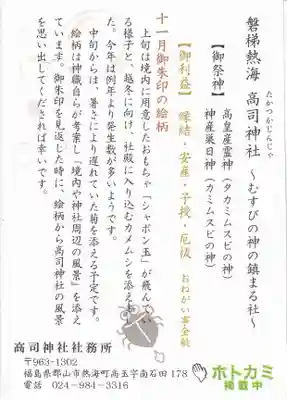 磐梯熱海 高司神社 ~むすびの神の鎮まる社~
たかつかじんじゃ
【御祭神】
高皇産霊神(タカミムスビの神)
神産巣日神(カミムスビの神)
【御利益】 縁結・安産・子授・厄祓 おねがい事全般
十一月御朱印の絵柄
上旬は境内に用意したおもちゃ「シャボン玉」が飛んでい
る様子と、越冬に向け、社殿に入り込むカメムシを添えまし
た。今年は例年より発生数が多いようです。
中旬からは、暑さにより遅れていた菊を添える予定です。
絵柄は神職自らが考案し「境内や神社周辺の風景」を添え
ています。御朱印を見返した時に、絵柄から高司神社の風景
を思い出してくだされば幸いです。
高司神社社務所
〒963-1302
福島県郡山市熱海町高玉字南石田178
電話 024-984-3316
ホトカミ
掲載中